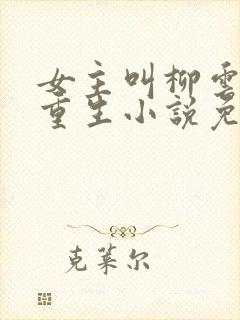 女主叫柳雲
重生小說免
克萊尔